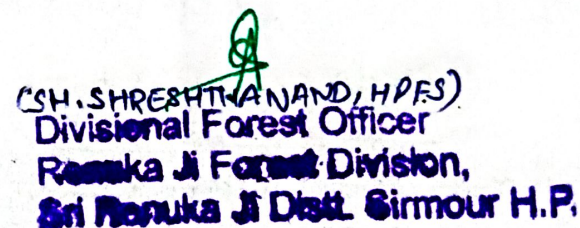 (SH. SHRESHTHA ANAND, HPFS)
Divisional Forest Officer
Renuka Ji Forest Division,
Sri Renuka Ji Distt. Sirmour H.P.